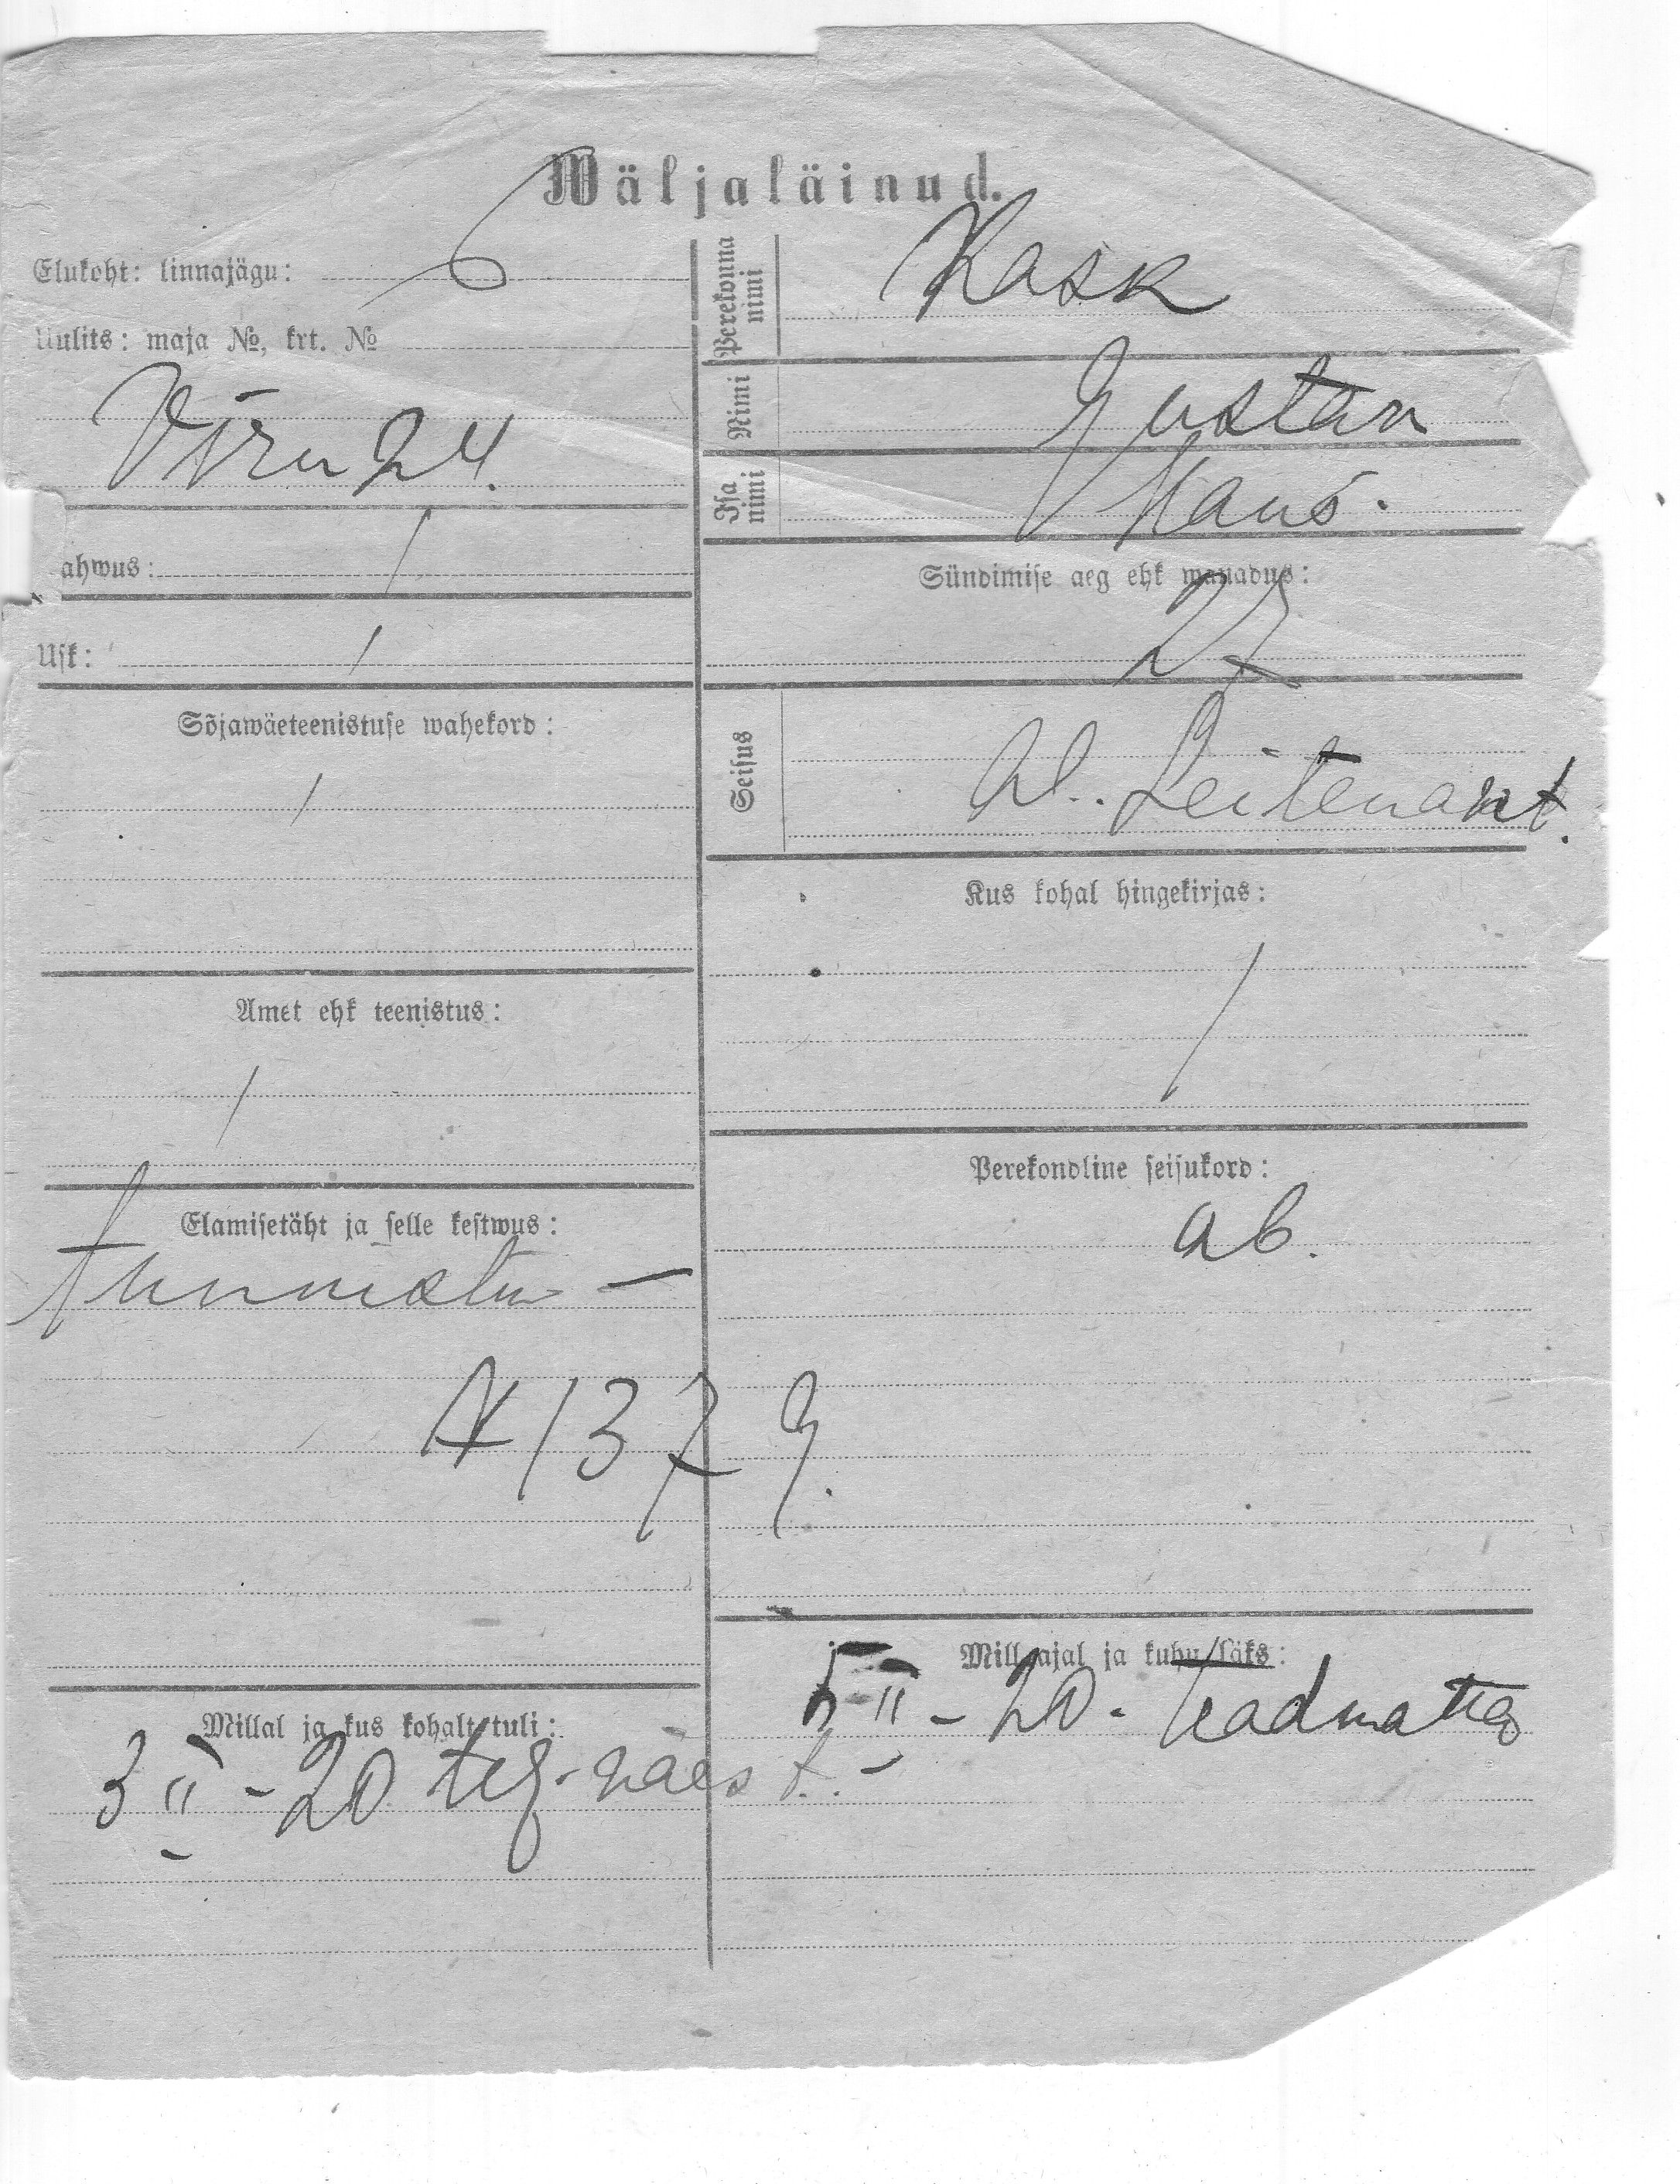 Wäljaläinud.
Elukoht: linnajägu: 6
Uulits: maja №, krt. №
Viru 24.
ahwus: /
Usk: /
Sõjawäeteenistuse wahekord:
/
Amet ehk teenistus:
/
Elamisetäht ja selle kestwus:
tunnistus —
№ 1379.
Millal ja kus kohalt tuli:
3 II - 20 teg. väest. -
Perekonna nimi Kask
Nimi Gustav
Isa nimi Hans.
Sündimise aeg ehk wanadus:
27
Seisus
W. Leitenant.
Kus kohal hingekirjas:
/
Perekondline seisukord:
ab.
Mill ajal ja kuhu läks:
5 II - 20 - teadmata